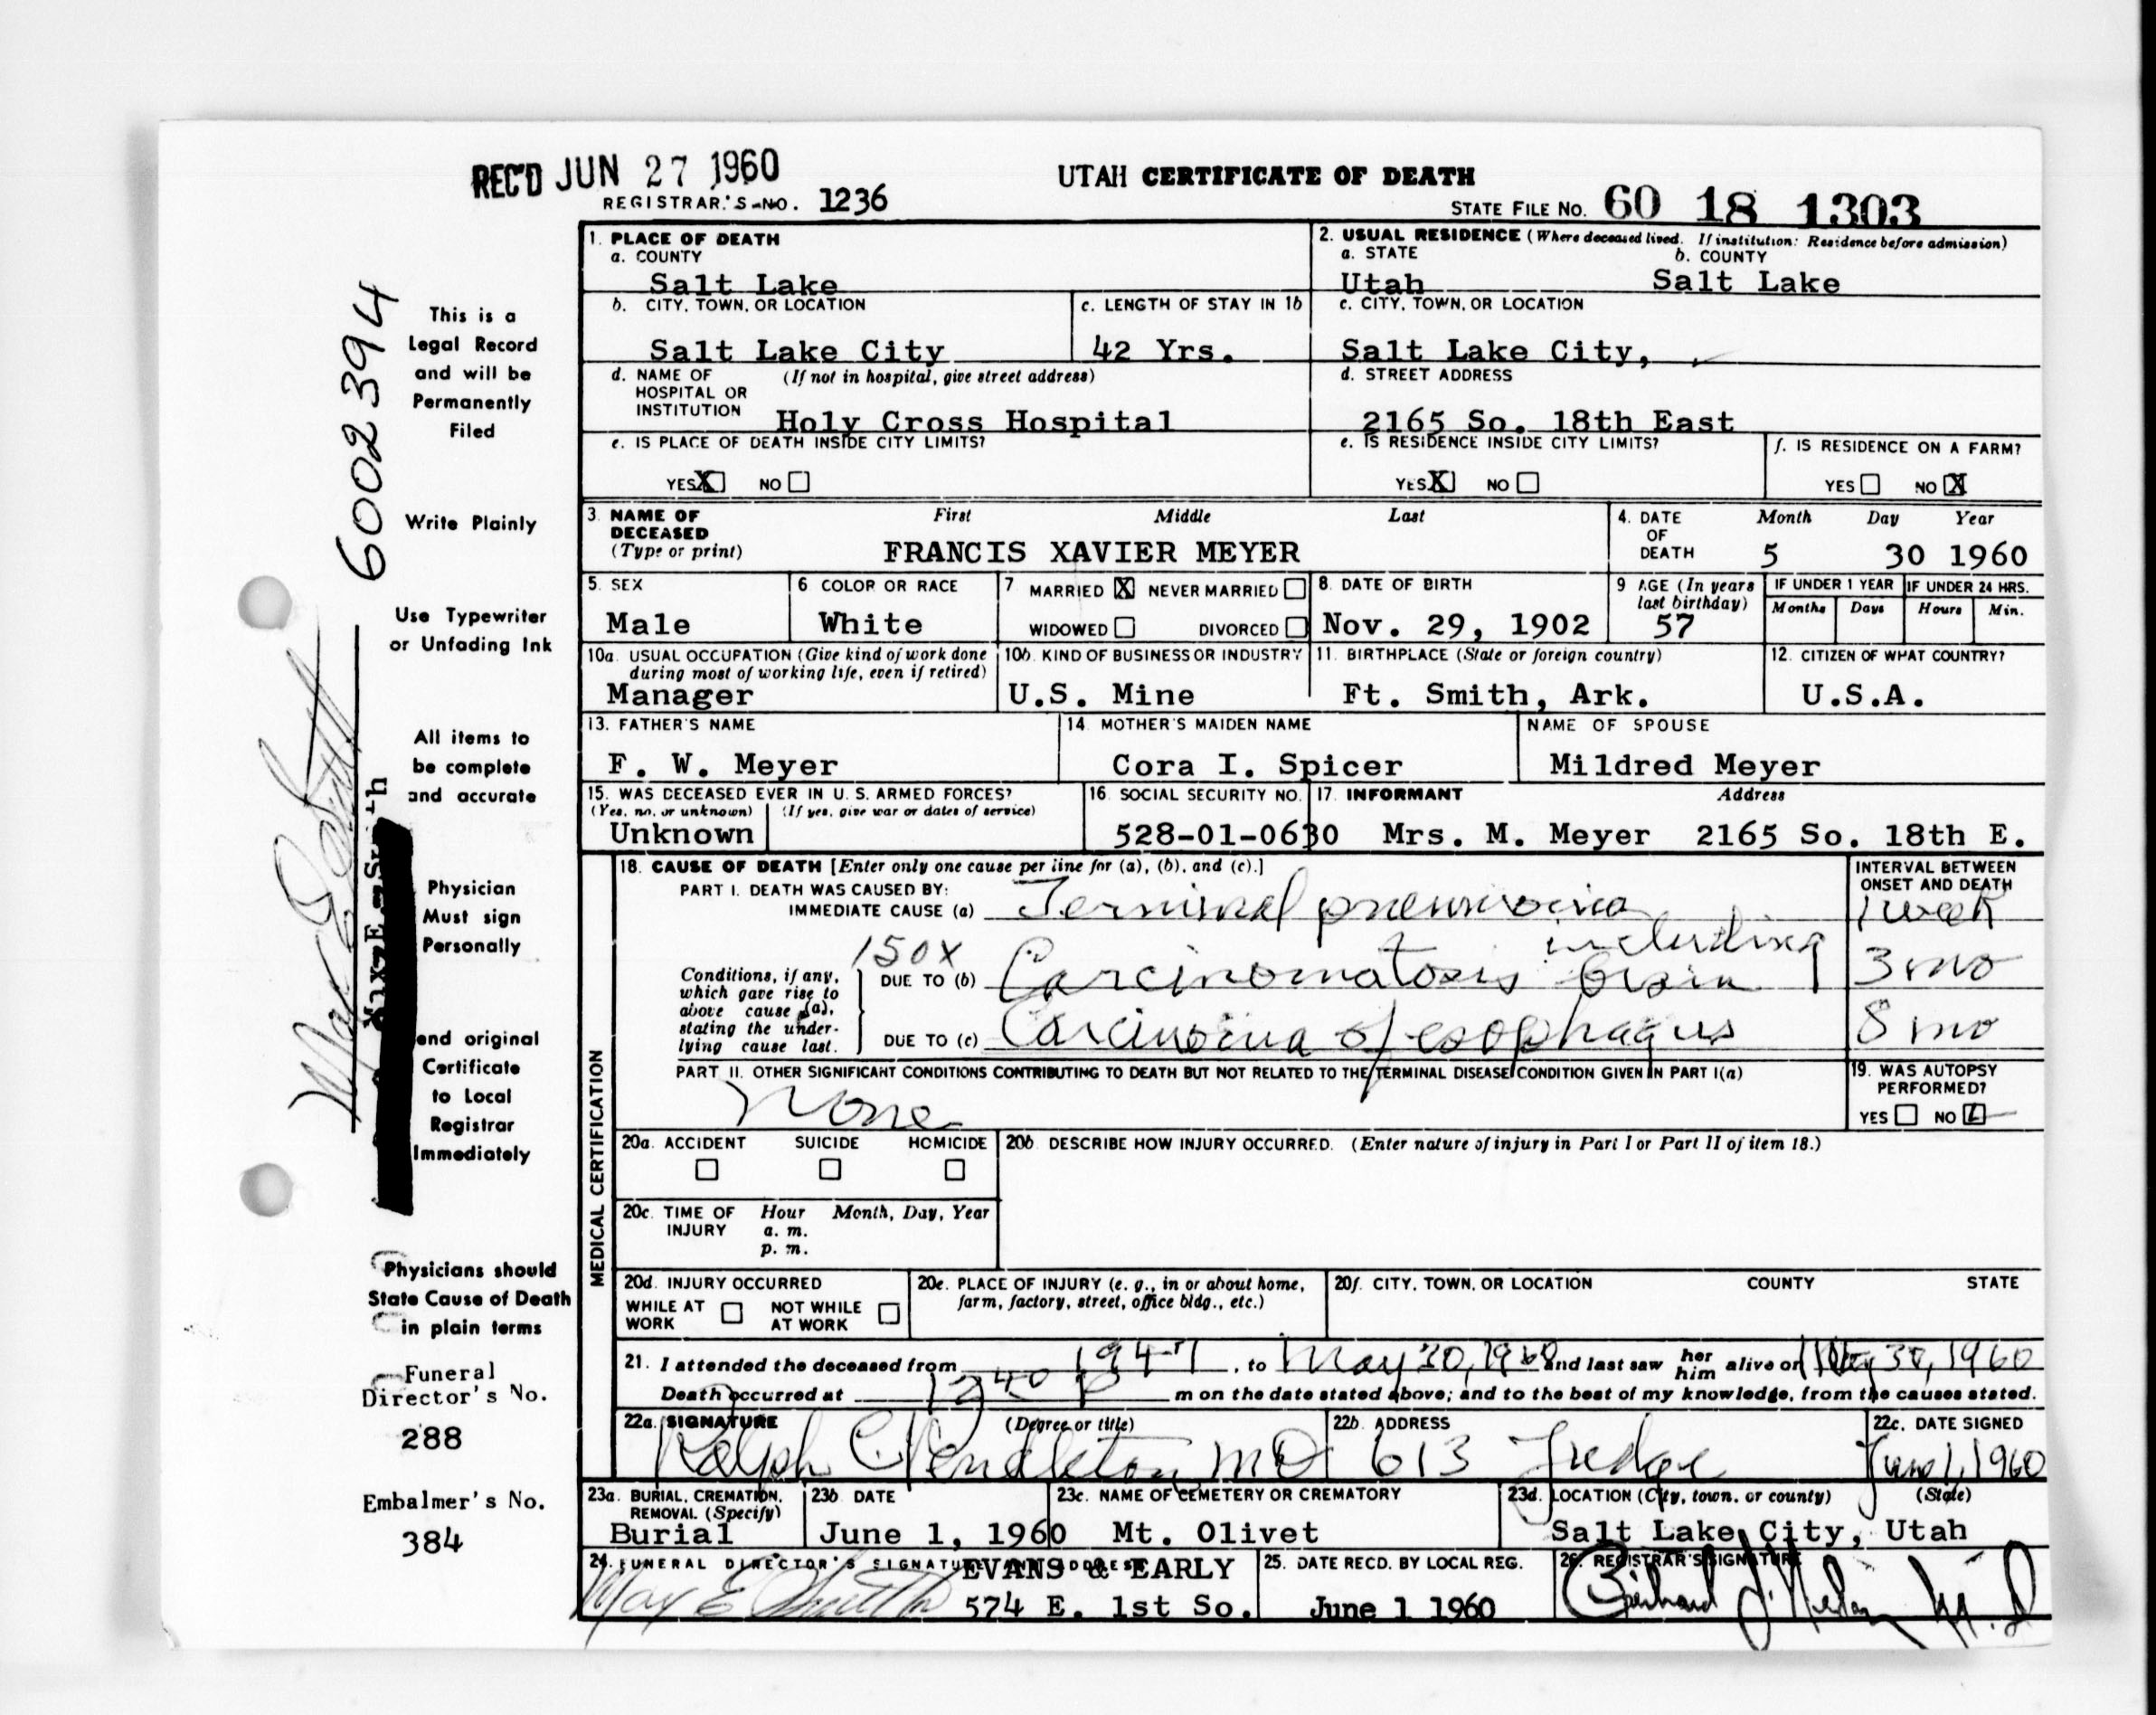 REC'D JUN 27 1960
REGISTRAR'S NO. 1236
UTAH CERTIFICATE OF DEATH
STATE FILE No. 60 18 1303
6002394
This is a
Legal Record
and will be
Permanently
Filed
Write Plainly
Use Typewriter
or Unfading Ink
All items to
be complete
and accurate
Physician
Must sign
Personally
end original
Certificate
to Local
Registrar
Immediately
Physicians should
State Cause of Death
in plain terms
Funeral
Director's No.
288
Embalmer's No.
384
Max E. Smith
1. PLACE OF DEATH
a. COUNTY
Salt Lake
2. USUAL RESIDENCE (Where deceased lived. If institution: Residence before admission)
a. STATE b. COUNTY
Utah Salt Lake
b. CITY, TOWN, OR LOCATION
Salt Lake City
c. LENGTH OF STAY IN 1b
42 Yrs.
c. CITY, TOWN, OR LOCATION
Salt Lake City,
d. NAME OF (If not in hospital, give street address)
HOSPITAL OR
INSTITUTION Holy Cross Hospital
d. STREET ADDRESS
2165 So. 18th East
e. IS PLACE OF DEATH INSIDE CITY LIMITS?
YES X NO
e. IS RESIDENCE INSIDE CITY LIMITS?
YES X NO
f. IS RESIDENCE ON A FARM?
YES NO X
3. NAME OF DECEASED First Middle Last
(Type or print) FRANCIS XAVIER MEYER
4. DATE OF DEATH Month Day Year
5 30 1960
5. SEX
Male
6 COLOR OR RACE
White
7 MARRIED X NEVER MARRIED
WIDOWED DIVORCED
8. DATE OF BIRTH
Nov. 29, 1902
9 AGE (In years last birthday)
57
IF UNDER 1 YEAR IF UNDER 24 HRS.
Months Days Hours Min.
10a. USUAL OCCUPATION (Give kind of work done
during most of working life, even if retired)
Manager
10b. KIND OF BUSINESS OR INDUSTRY
U.S. Mine
11. BIRTHPLACE (State or foreign country)
Ft. Smith, Ark.
12. CITIZEN OF WHAT COUNTRY?
U.S.A.
13. FATHER'S NAME
F. W. Meyer
14. MOTHER'S MAIDEN NAME
Cora I. Spicer
NAME OF SPOUSE
Mildred Meyer
15. WAS DECEASED EVER IN U. S. ARMED FORCES?
(Yes, no, or unknown) (If yes, give war or dates of service)
Unknown
16. SOCIAL SECURITY NO.
528-01-0630
17. INFORMANT Address
Mrs. M. Meyer 2165 So. 18th E.
MEDICAL CERTIFICATION
18. CAUSE OF DEATH [Enter only one cause per line for (a), (b), and (c).]
INTERVAL BETWEEN
ONSET AND DEATH
PART I. DEATH WAS CAUSED BY:
IMMEDIATE CAUSE (a) Terminal pneumonia 1 week
150X including
Conditions, if any,
which gave rise to
above cause (a),
stating the under-
lying cause last.
DUE TO (b) Carcinomatosis brain 3 mo
DUE TO (c) Carcinoma of esophagus 8 mo
PART II. OTHER SIGNIFICANT CONDITIONS CONTRIBUTING TO DEATH BUT NOT RELATED TO THE TERMINAL DISEASE CONDITION GIVEN IN PART I(a)
None
19. WAS AUTOPSY
PERFORMED?
YES NO
20a. ACCIDENT SUICIDE HOMICIDE
20b. DESCRIBE HOW INJURY OCCURRED. (Enter nature of injury in Part I or Part II of item 18.)
20c. TIME OF INJURY Hour Month, Day, Year
a. m.
p. m.
20d. INJURY OCCURRED
WHILE AT WORK NOT WHILE AT WORK
20e. PLACE OF INJURY (e. g., in or about home,
farm, factory, street, office bldg., etc.)
20f. CITY, TOWN, OR LOCATION COUNTY STATE
21. I attended the deceased from , to May 30, 1960 and last saw her him alive on May 30, 1960
Death occurred at 1240 P m on the date stated above; and to the best of my knowledge, from the causes stated.
22a. SIGNATURE (Degree or title)
Ralph C Pendleton MD
22b. ADDRESS
613 Judge
22c. DATE SIGNED
June 1, 1960
23a. BURIAL, CREMATION,
REMOVAL (Specify)
Burial
23b DATE
June 1, 1960
23c. NAME OF CEMETERY OR CREMATORY
Mt. Olivet
23d. LOCATION (City, town, or county) (State)
Salt Lake City, Utah
24. FUNERAL DIRECTOR'S SIGNATURE AND ADDRESS
EVANS & EARLY
Max E Smith 574 E. 1st So.
25. DATE RECD. BY LOCAL REG.
June 1 1960
26. REGISTRAR'S SIGNATURE